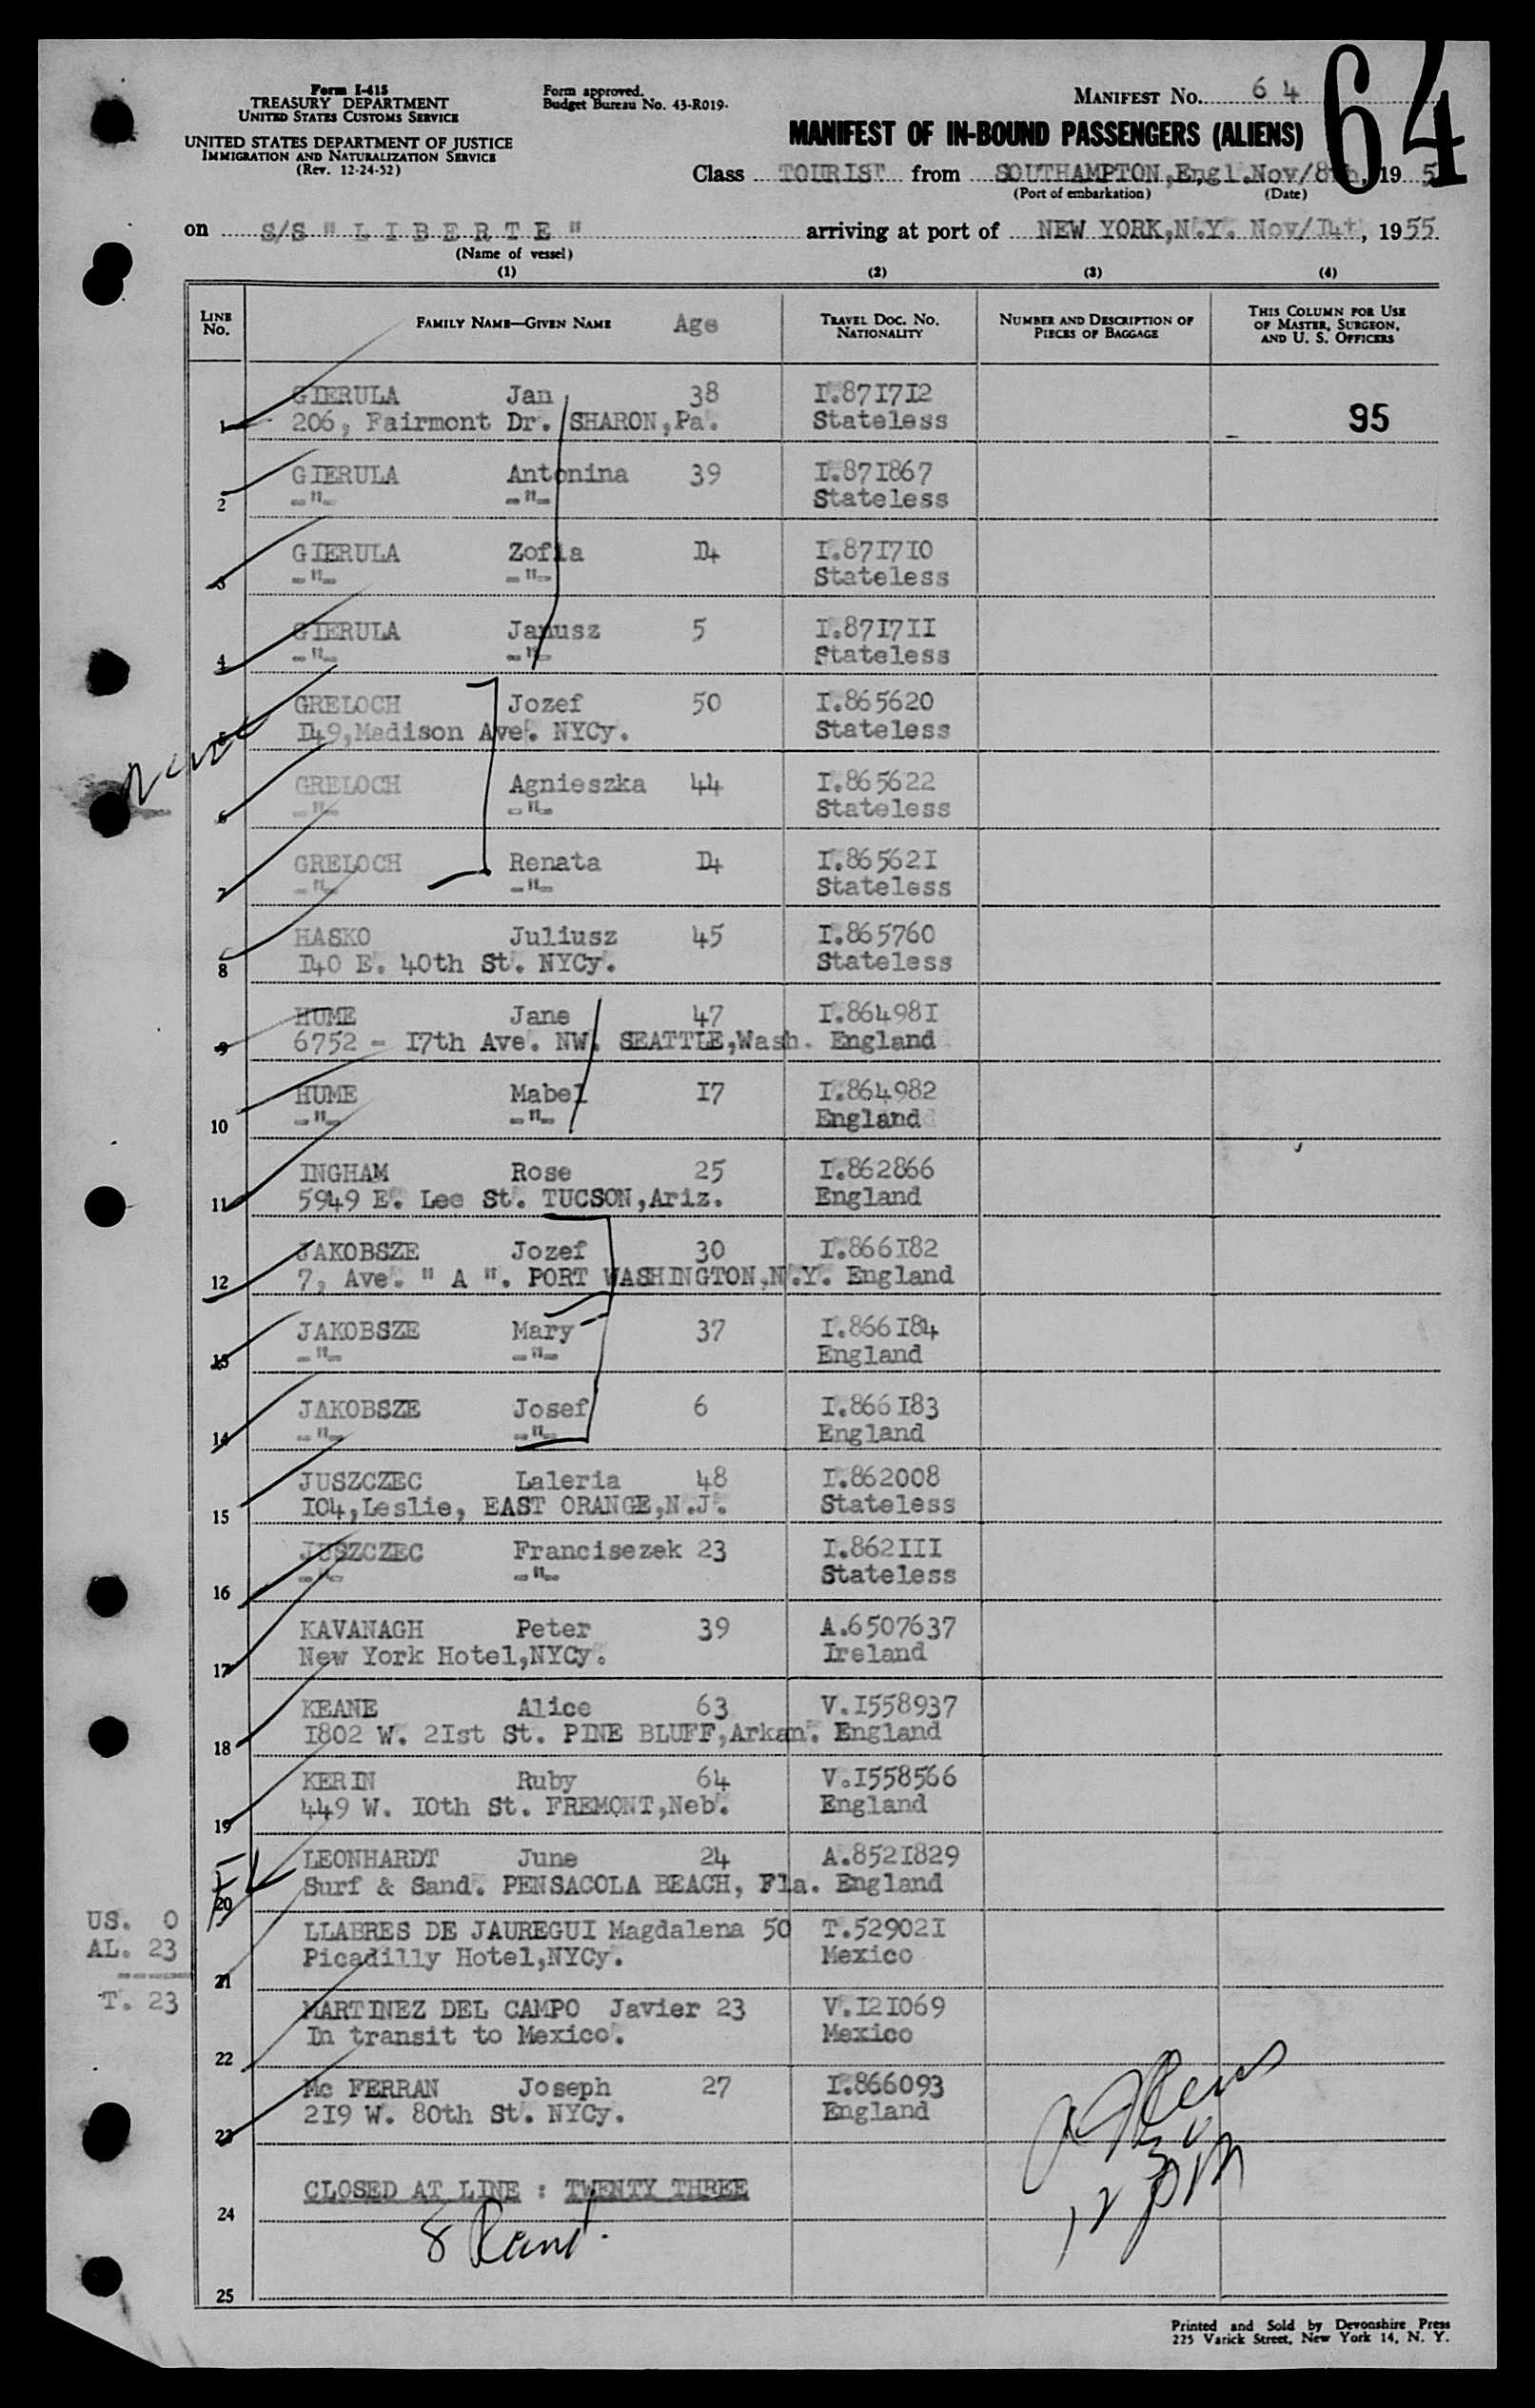 Form I-415
TREASURY DEPARTMENT
UNITED STATES CUSTOMS SERVICE
UNITED STATES DEPARTMENT OF JUSTICE
IMMIGRATION AND NATURALIZATION SERVICE
(Rev. 12-24-52)
Form approved.
Budget Bureau No. 43-R019.
MANIFEST No. 64
64
MANIFEST OF IN-BOUND PASSENGERS (ALIENS)
Class TOURIST from SOUTHAMPTON, Engl. Nov/8th, 19 5
(Port of embarkation) (Date)
on S/S " L I B E R T E " arriving at port of NEW YORK, N.Y. Nov/I4t, 1955
(Name of vessel)
(1) (2) (3) (4)
LINE No. FAMILY NAME—GIVEN NAME Age TRAVEL DOC. No. NATIONALITY NUMBER AND DESCRIPTION OF PIECES OF BAGGAGE THIS COLUMN FOR USE OF MASTER, SURGEON, AND U. S. OFFICERS
GIERULA Jan 38 I.871712
1 206, Fairmont Dr. SHARON, Pa. Stateless 95
GIERULA Antonina 39 I.871867
2 -"- -"- Stateless
GIERULA Zofia I4 I.871710
3 -"- -"- Stateless
GIERULA Janusz 5 I.871711
4 -"- -"- Stateless
GRELOCH Jozef 50 I.865620
5 I49, Madison Ave. NYCy. Stateless
GRELOCH Agnieszka 44 I.865622
6 -"- -"- Stateless
GRELOCH Renata I4 I.865621
7 -"- -"- Stateless
HASKO Juliusz 45 I.865760
8 I40 E. 40th St. NYCy. Stateless
HUME Jane 47 I.864981
9 6752 - I7th Ave. NW. SEATTLE, Wash. England
HUME Mabel I7 I.864982
10 -"- -"- England
INGHAM Rose 25 I.862866
11 5949 E. Lee St. TUCSON, Ariz. England
JAKOBSZE Jozef 30 I.866182
12 7, Ave. " A ". PORT WASHINGTON, N.Y. England
JAKOBSZE Mary 37 I.866184
13 -"- -"- England
JAKOBSZE Josef 6 I.866183
14 -"- -"- England
JUSZCZEC Laleria 48 I.862008
15 I04, Leslie, EAST ORANGE, N.J. Stateless
JUSZCZEC Francisezek 23 I.862111
16 -"- -"- Stateless
KAVANAGH Peter 39 A.6507637
17 New York Hotel, NYCy. Ireland
KEANE Alice 63 V.I558937
18 I802 W. 2Ist St. PINE BLUFF, Arkan. England
KERIN Ruby 64 V.I558566
19 449 W. I0th St. FREMONT, Neb. England
LEONHARDT June 24 A.852I829
20 Surf & Sand. PENSACOLA BEACH, Fla. England
US. 0
AL. 23
T. 23
LLABRES DE JAUREGUI Magdalena 50 T.52902I
21 Picadilly Hotel, NYCy. Mexico
MARTINEZ DEL CAMPO Javier 23 V.I2I069
22 In transit to Mexico. Mexico
Mc FERRAN Joseph 27 I.866093
23 2I9 W. 80th St. NYCy. England
24 CLOSED AT LINE : TWENTY THREE
25
Printed and Sold by Devonshire Press
225 Varick Street, New York 14, N. Y.